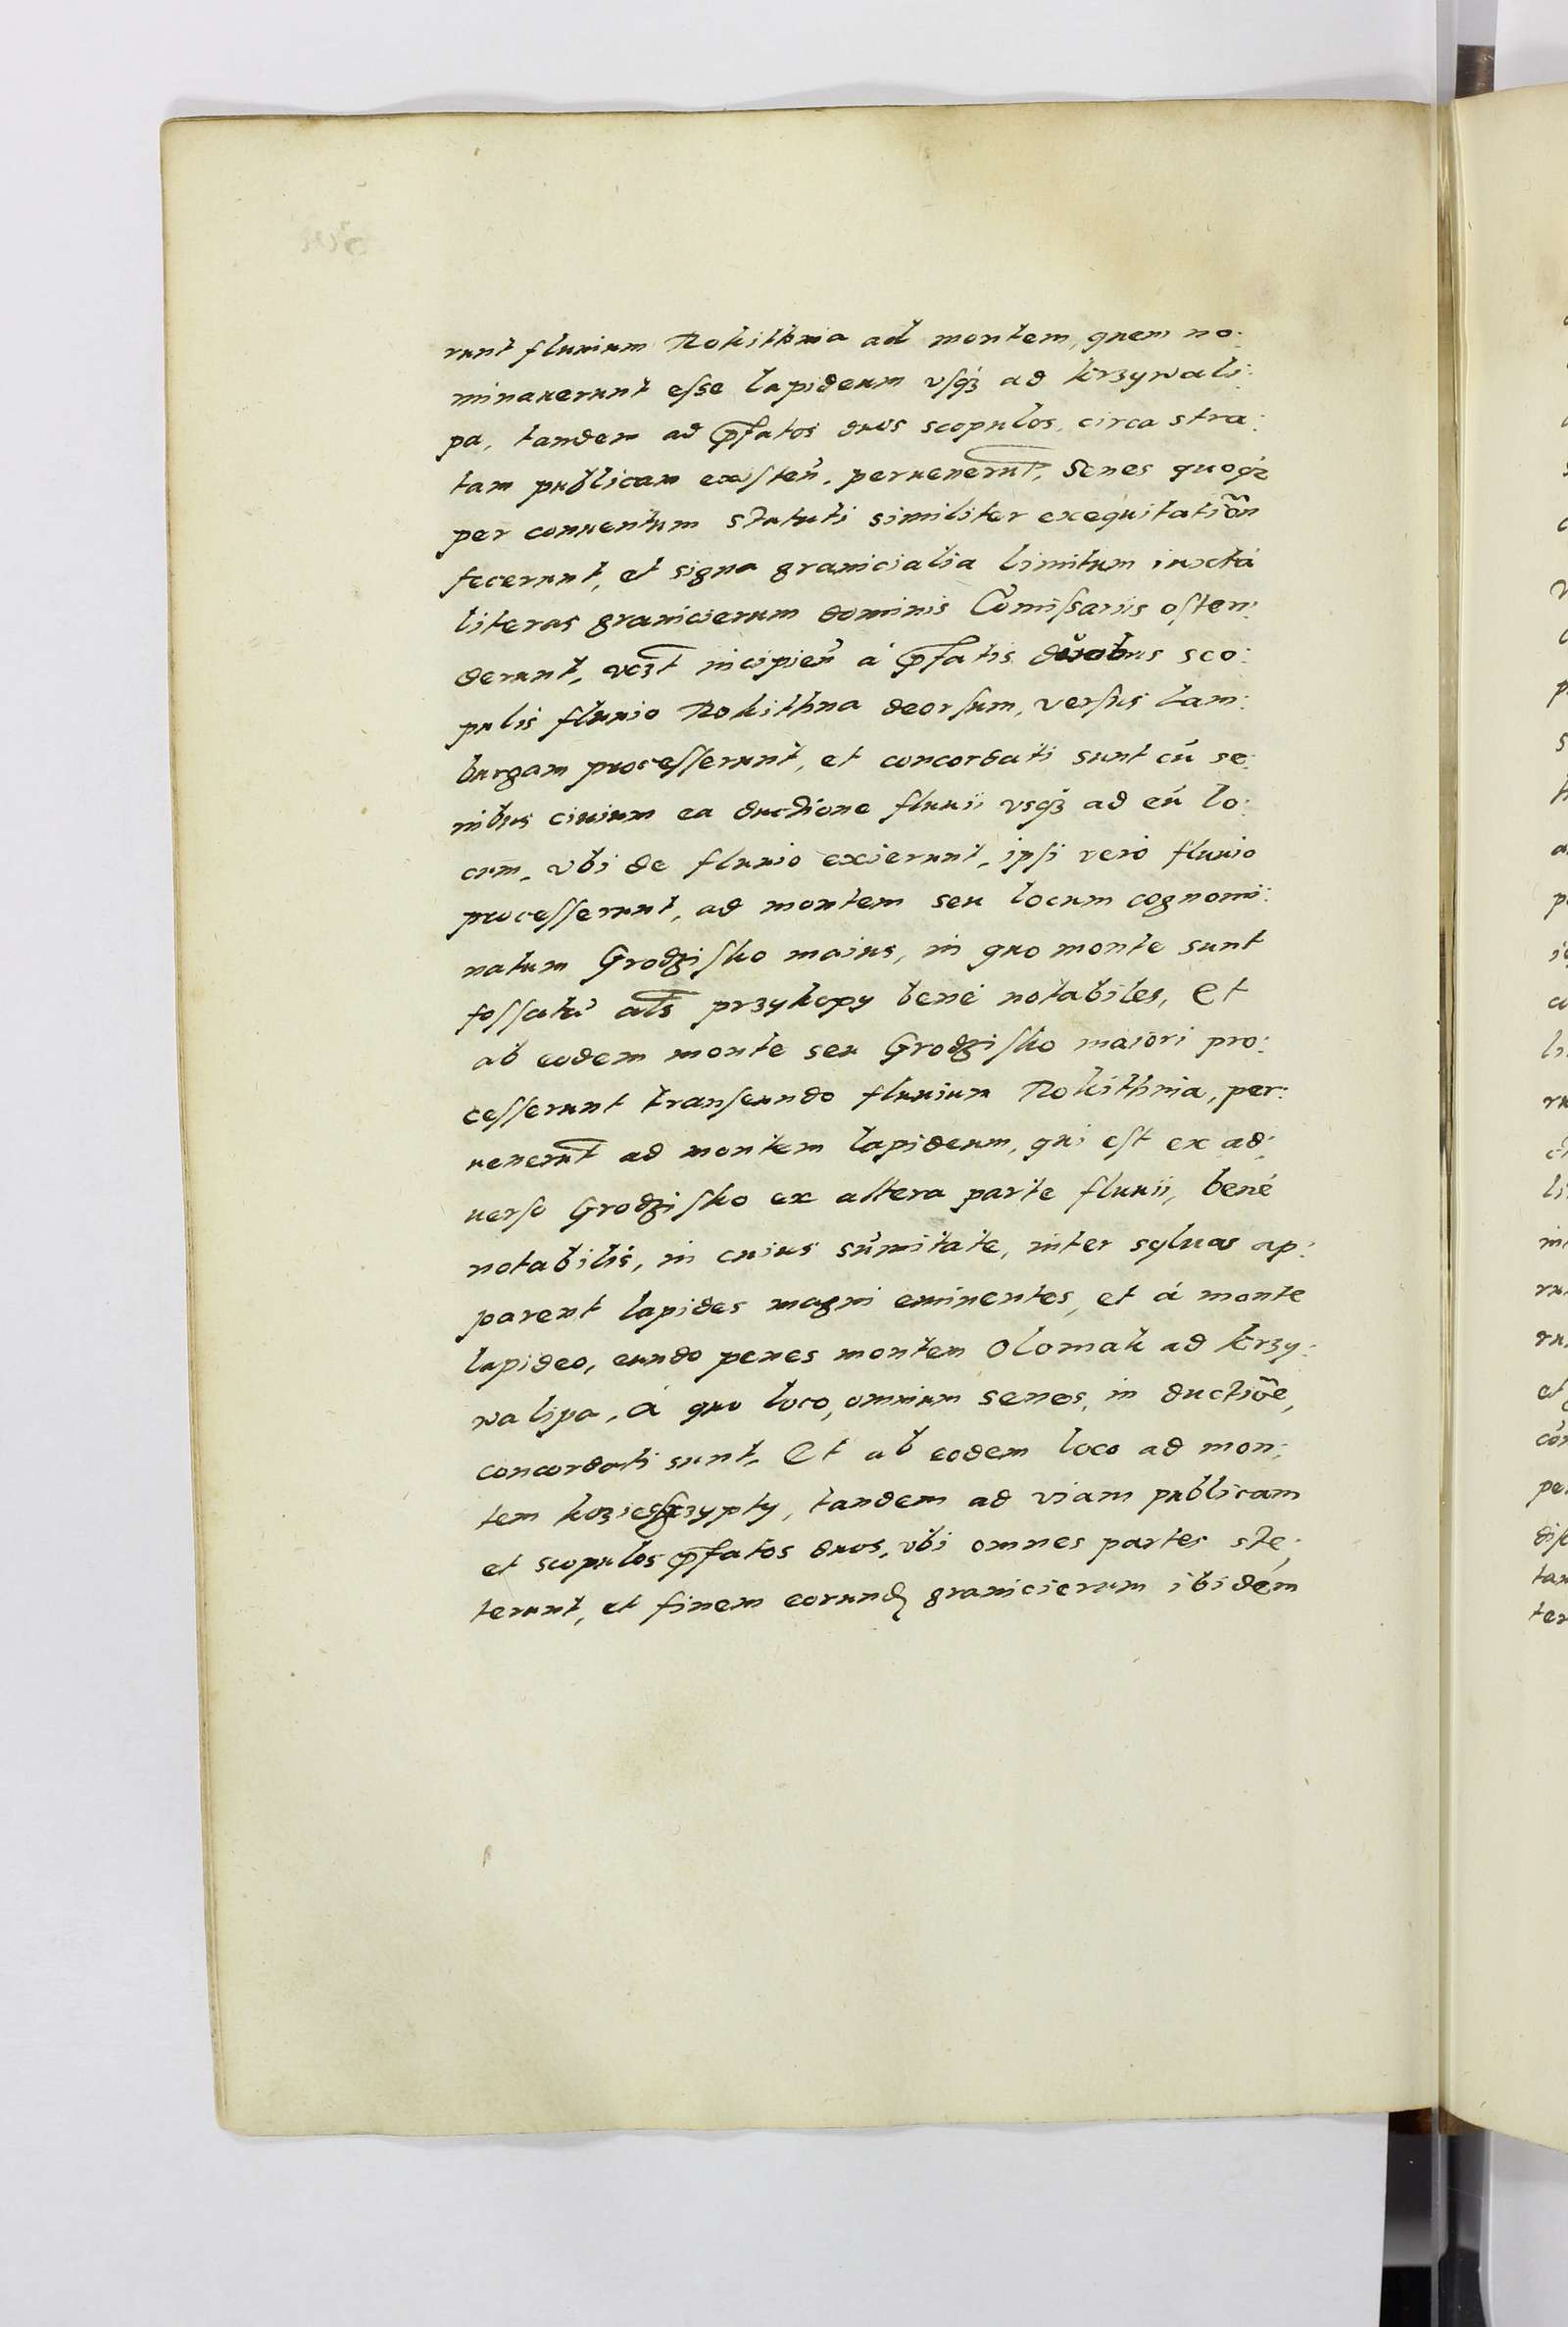 runt fluuium Rokithnia ad montem, quem no:
minauerunt eſse lapideum vſqȝ ad krzywali:
pa, tandem ad p̃fatos duos scopulos, circa stra:
tam publicam exiſteñ. peruenerũt, Senes quoqȝ
per conuentum statuti similiter exequitatiõn
fecerunt, et signa granicialia limitum iuxtà
literas granicierum dominis Com̃iſsariis oſten:
derunt, vczt incipieñ à p̃fatis duobus sco:
pulis fluuio Rokithna deorſum, verſus Lam:
burgam proceſſerunt, et concordati sunt cũ se:
nibus ciuium ea ductione fluuii vsqȝ ad eũ lo:
cum, vbi de fluuio exierunt, ipſi verò fluuio
proceſſerunt, ad montem seu locum cognomi:
natum Grodziſko maius, in quo monte sunt
foſſata al̃s przykopy benè notabiles, Et
ab eodem monte seu Grodziſko maiori pro:
ceſſerunt tranſeundo fluuium Rokithnia, per:
uenerũt ad montem lapideum, qui eſt ex ad:
uerſo Grodziſko ex altera parte fluuii, benè
notabilis, in cuius sum̃itate, inter syluas ap:
parent lapides magni eminentes, et à monte
lapideo, eundo penes montem Olomak ad krzy:
walipa, à quo loco, omnium senes, in ductiõe,
concordati sunt, Et ab eodem loco ad mon:
tem, tandem ad viam publicam
et scopulos p̃fatos duos, vbi omnes partes ste:
terunt, et finem eorund̃ granicierum ibidem